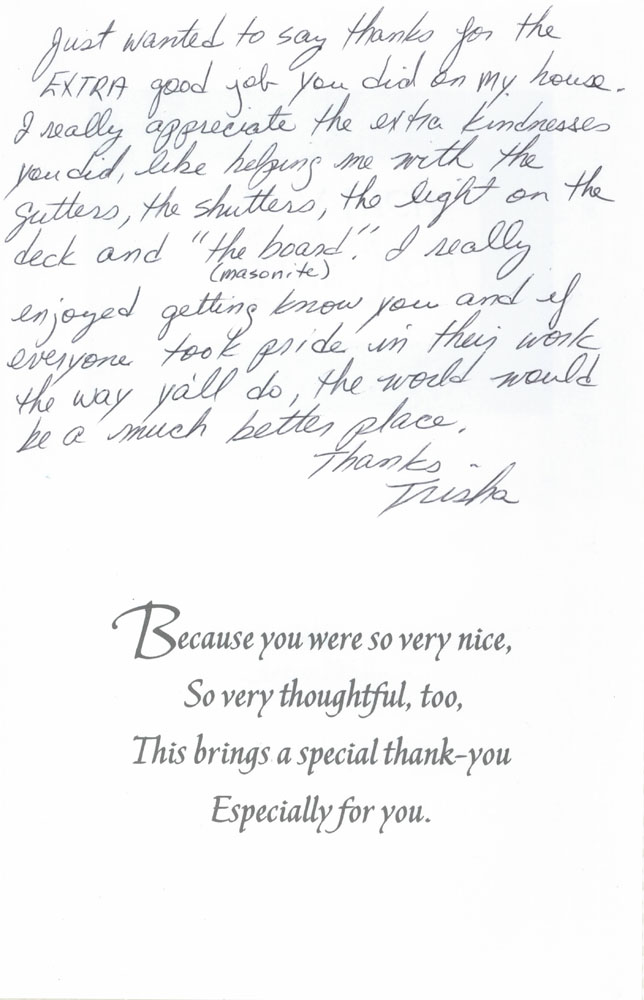 Just wanted to say thanks for the
EXTRA good job you did on my house.
I really appreciate the extra kindnesses
you did, like helping me with the
gutters, the shutters, the light on the
deck and "the board". I really
(masonite)
enjoyed getting know you and if
everyone took pride in their work
the way ya'll do, the world would
be a much better place.
Thanks -
Trisha
Because you were so very nice,
So very thoughtful, too,
This brings a special thank-you
Especially for you.